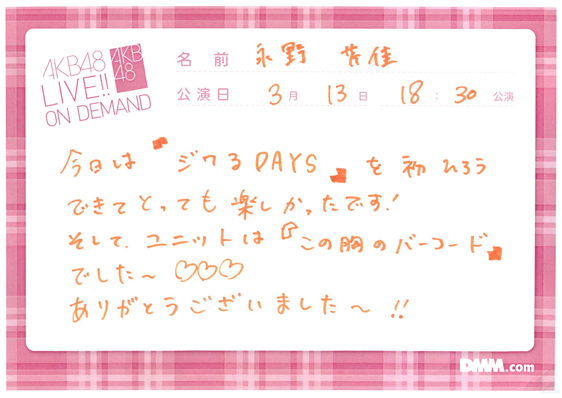 AKB48
LIVE!!
ON DEMAND
AKB
48
名前 永野 芹佳
公演日 3月 13日 18:30 公演
今日は『ジワるDAYS』を初ひろう
できてとっても楽しかったです!
そして、ユニットは『この胸のバーコード』
でした〜 ♡♡♡
ありがとうございました〜!!
DMM.com